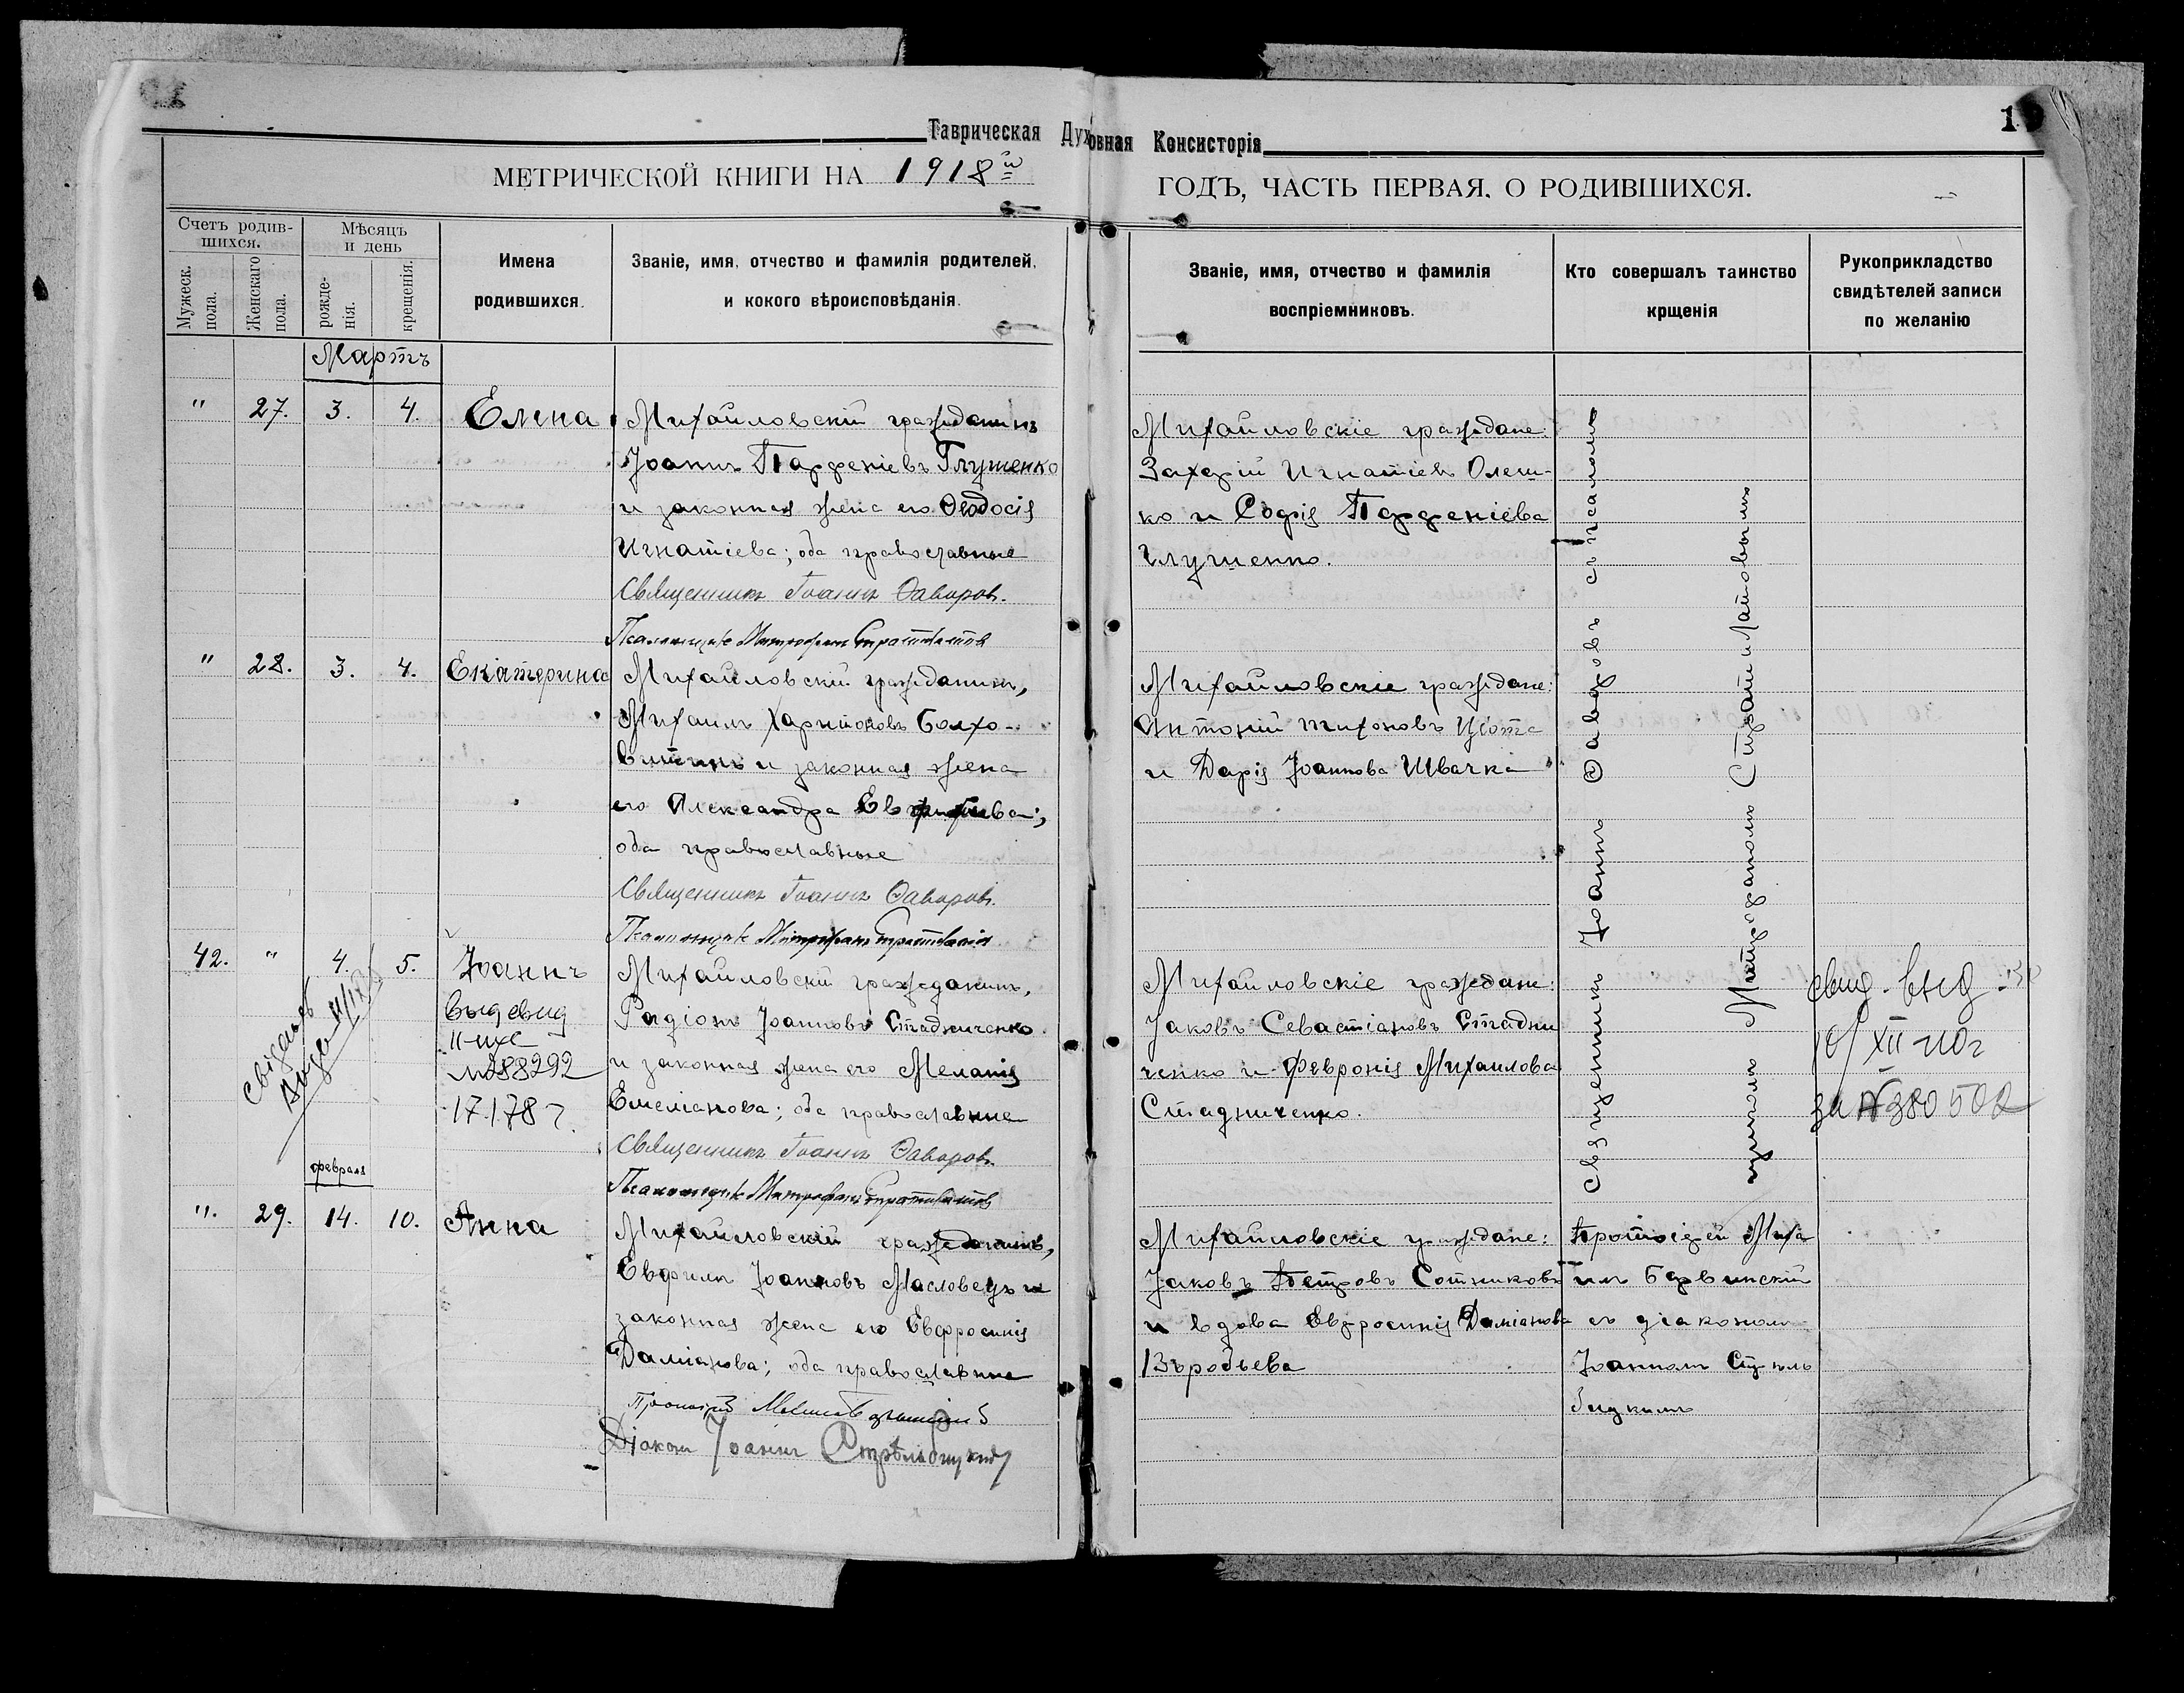 Таврическая Духовная Консисторія
19
МЕТРИЧЕСКОЙ КНИГИ НА 1918й
ГОДЪ, ЧАСТЬ ПЕРВАЯ. О РОДИВШИХСЯ.
Счетъ родив-
шихся.
Мужеск. пола.
Женскаго пола.
Мѣсяцъ
и день
рожде-
нія.
крещенія.
Имена
родившихся.
Званіе, имя, отчество и фамилія родителей,
и кокого вѣроисповѣданія.
Званіе, имя, отчество и фамилія
воспріемниковъ.
Кто совершалъ таинство
крщенія
Рукоприкладство
свидѣтелей записи
по желанію
Мартъ
" 27. 3. 4. Елена
Михайловскій гражданинъ
Іоаннъ Парѳеніевъ Глущенко
и законная жена его Ѳеодосія
Игнатіева; оба православные
Священникъ Іоаннъ Ѳаворовъ.
Псаломщикъ Митрофанъ
Михайловскіе граждане:
Захарій Игнатіевъ Олеш-
ко и Софія Парѳеніева
Глущенко.
" 28. 3. 4. Екатерина
Михайловскій гражданинъ,
Михаилъ Харитоновъ Болхо-
витинъ и законная жена
его Александра
оба православные
Священникъ Іоаннъ Ѳаворовъ.
Псаломщикъ Митрофанъ
Михайловскіе граждане:
Антоній Тихоновъ
и Дарія Іоаннова Швачка
42. " 4. 5. Іоаннъ
выд свид
II-ИХС
№288292
17.1.78 г.
Михайловскій гражданинъ,
Радіонъ Іоанновъ Стадниченко
и законная жена его Меланія
Емеліанова; оба православные
Священникъ Іоаннъ Ѳаворовъ.
Псаломщикъ Митрофанъ
Михайловскіе граждане:
Іаковъ Севастіановъ Стадни
ченко и Февронія Михаилова
Стадниченко.
Священникъ Іоаннъ Ѳаворовъ съ псалом
щикомъ Митрофаномъ
свид. выд
10/XII-
за №380502
февраля
". 29. 14. 10. Анна
Михайловскій гражданинъ,
Евфимъ Іоанновъ Масловецъ и
законная жена его Евфросинія
Даміанова; оба православные
Діаконъ Іоаннъ Стрѣльбицкій
Михайловскіе граждане:
Іаковъ Петровъ Сотниковъ
и вдова Евфросинія Даміанова
Протоіерей Миха
илъ
съ діакономъ
Іоанномъ Стрѣль
бицкимъ